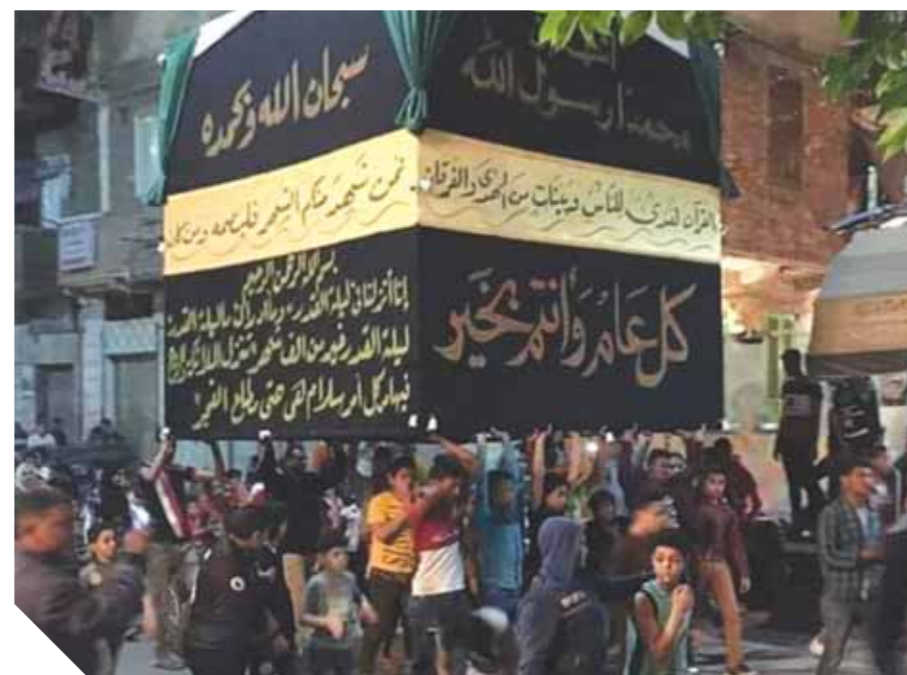 سبحان الله وبحمده
محمدا رسول الله
فمن شهد منكم الشهر فليصمه ومن كان
القرآن هدى للناس وبينات من الهدى والفرقان
بسم الله الرحمن الرحيم
إنا أنزلناه فى ليلة القدر وما أدراك ما ليلة القدر
ليلة القدر خير من الف شهر تنزل الملائكة
فيها من كل أمر سلام هى حتى مطلع الفجر
كل عام وأنتم بخير